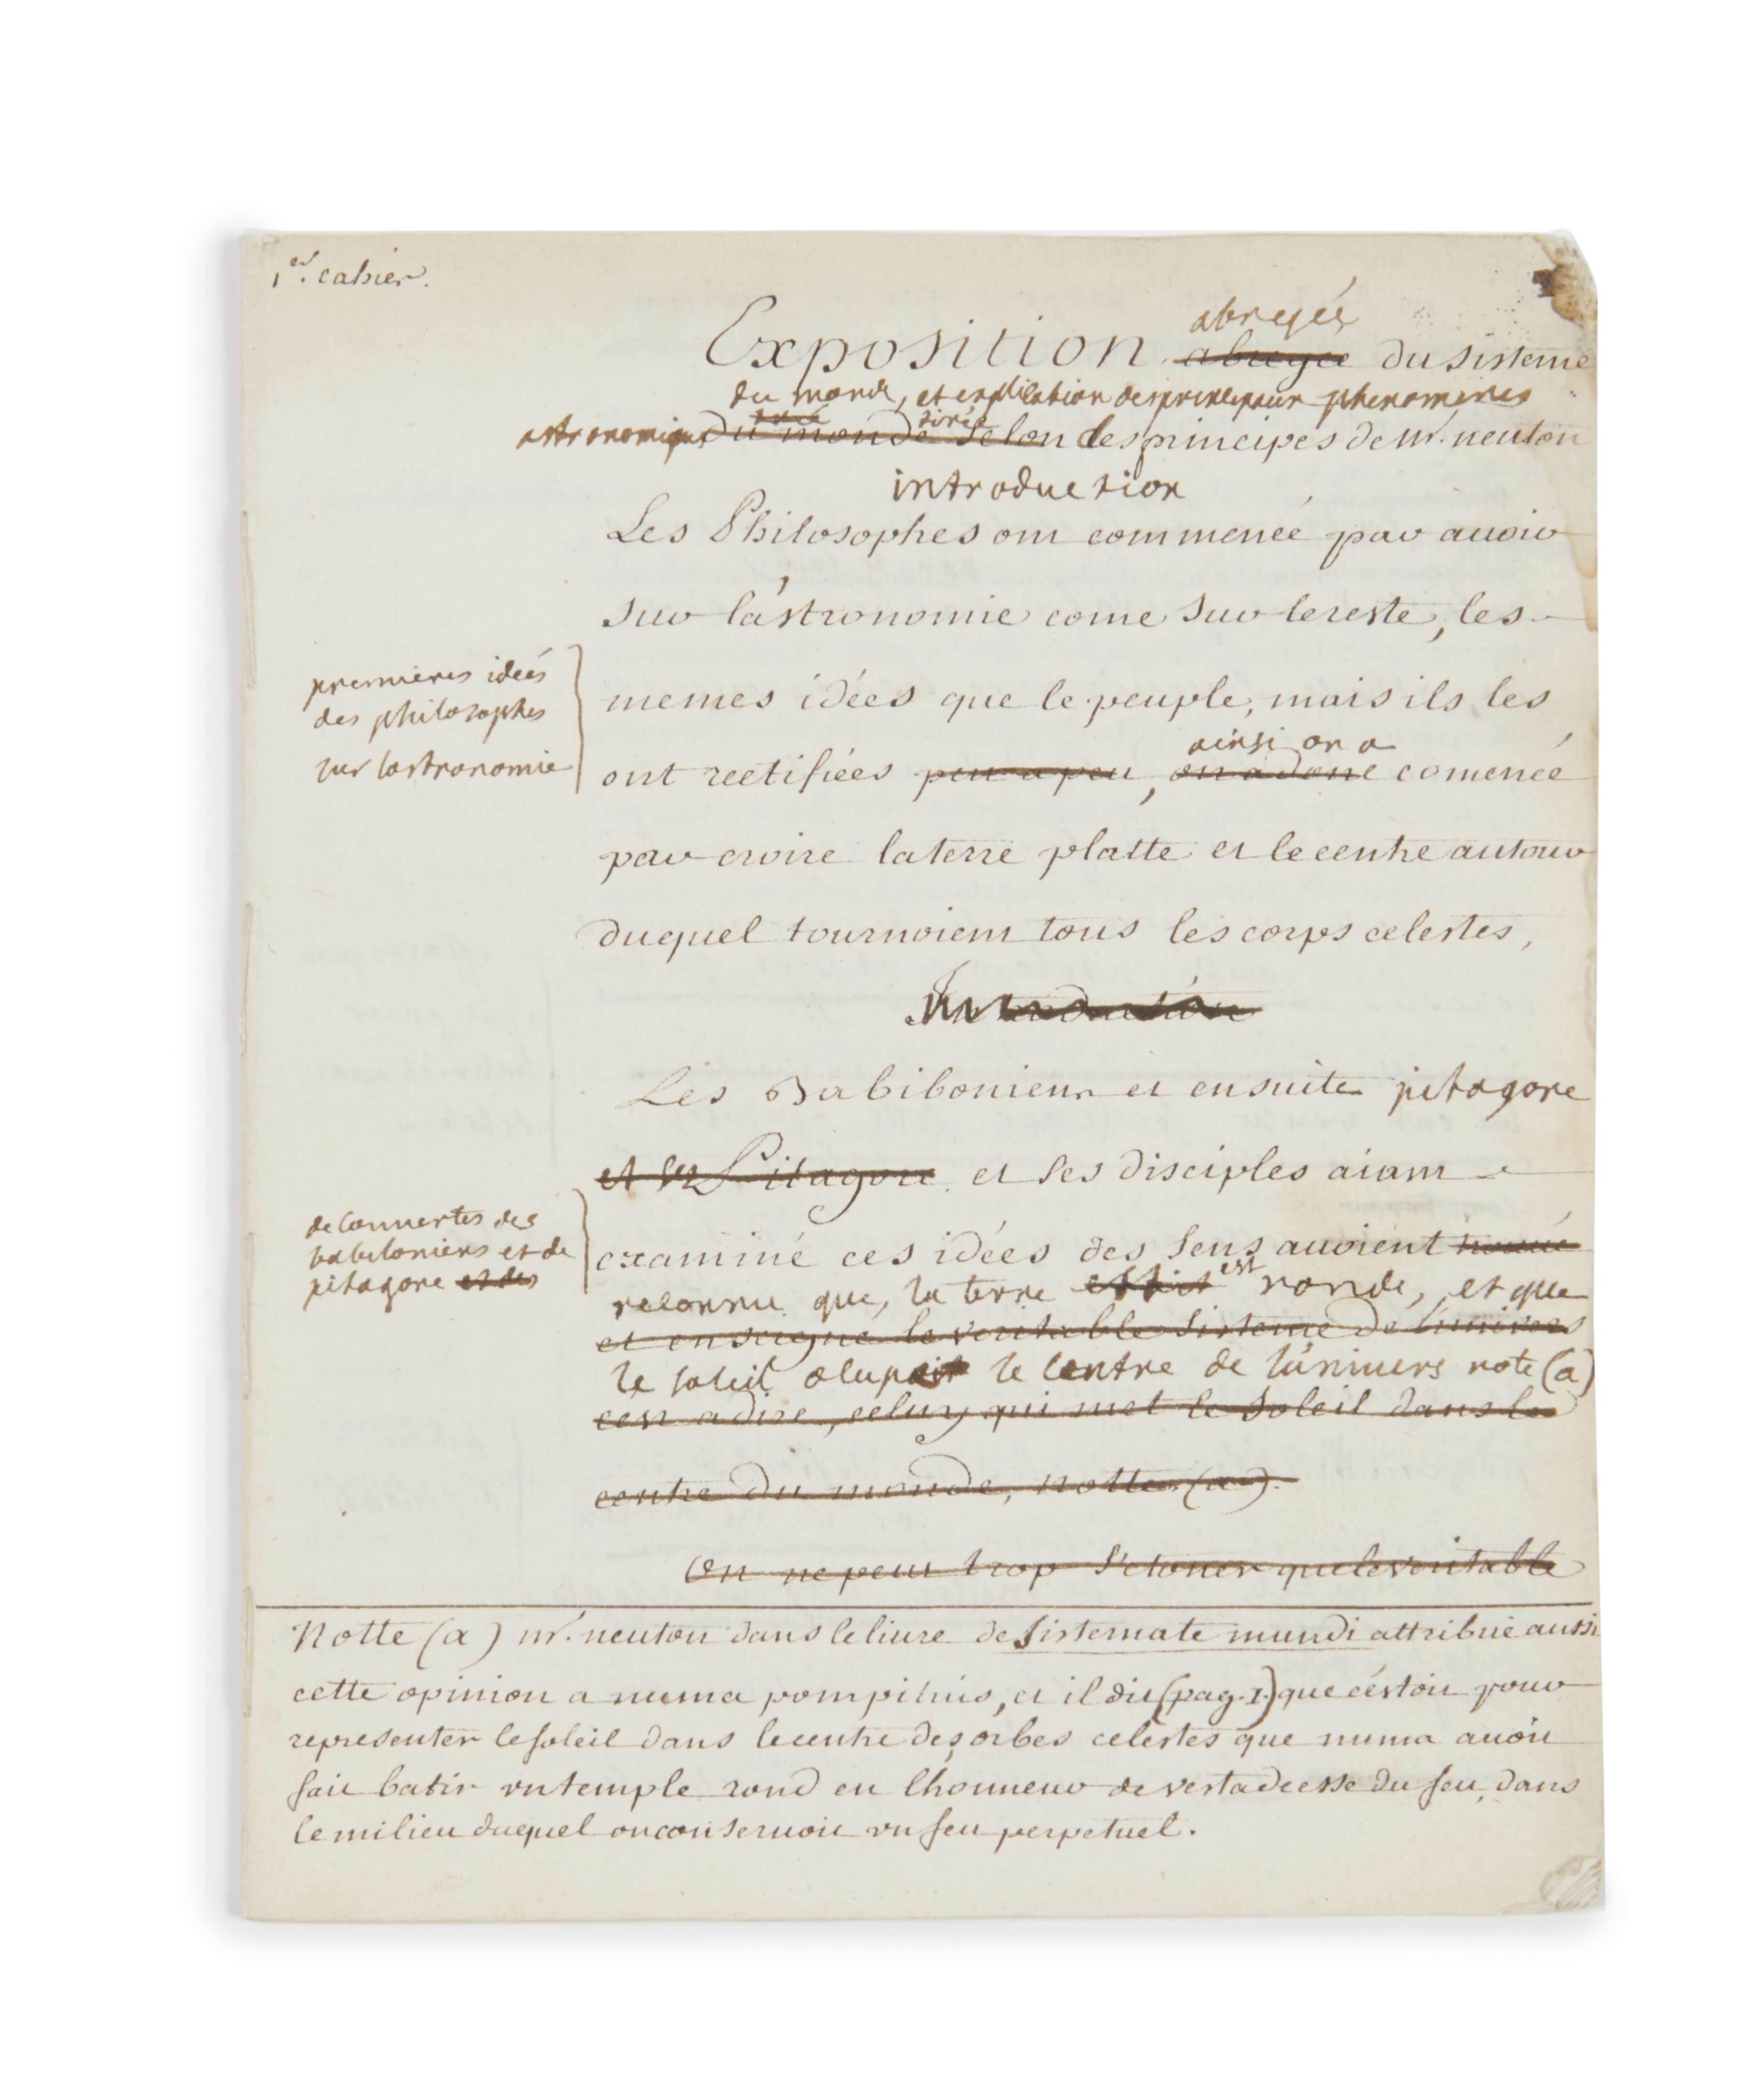 1er. cahier.
abregée
Exposition abregée du sisteme
du monde, et explication des principaux phenomenes
tirée
astronomiques du monde selon des principes de Mr. neuton
introduction
Les Philosophes ont commencé par avoir
sur l'astronomie come sur le reste, les
memes idées que le peuple, mais ils les
ainsi on a
ont rectifiées peu a peu, on a donc comencé
par croire la terre platte et le centre autour
duquel tournoient tous les corps celestes,
Introduction
premieres idées
des philosophes
sur lastronomie
Les Babiboniens et ensuite pitagore
et les Pitagore et ses disciples aiant
examiné ces idées des sens avoient trouvé
reconnu que, la terre estoit est ronde, et que
et enseigné le veritable sisteme de l'univers
le soleil ocupoit le centre de l'univers note (a)
c'est a dire, celuy qui met le soleil dans le
centre du monde, notte (a).
decouvertes des
babiloniens et de
pitagore et des
On ne peut trop s'etoner que le veritable
Notte (a) mr. neuton dans le livre de Sistemate mundi attribue aussi
cette opinion a numa pompilius, et il dit (pag. 1.) que c'estoit pour
representer le soleil dans le centre des orbes celestes que numa avoit
fait batir un temple rond en l'honneur de vesta deesse du feu, dans
le milieu duquel on conservoit un feu perpetuel.